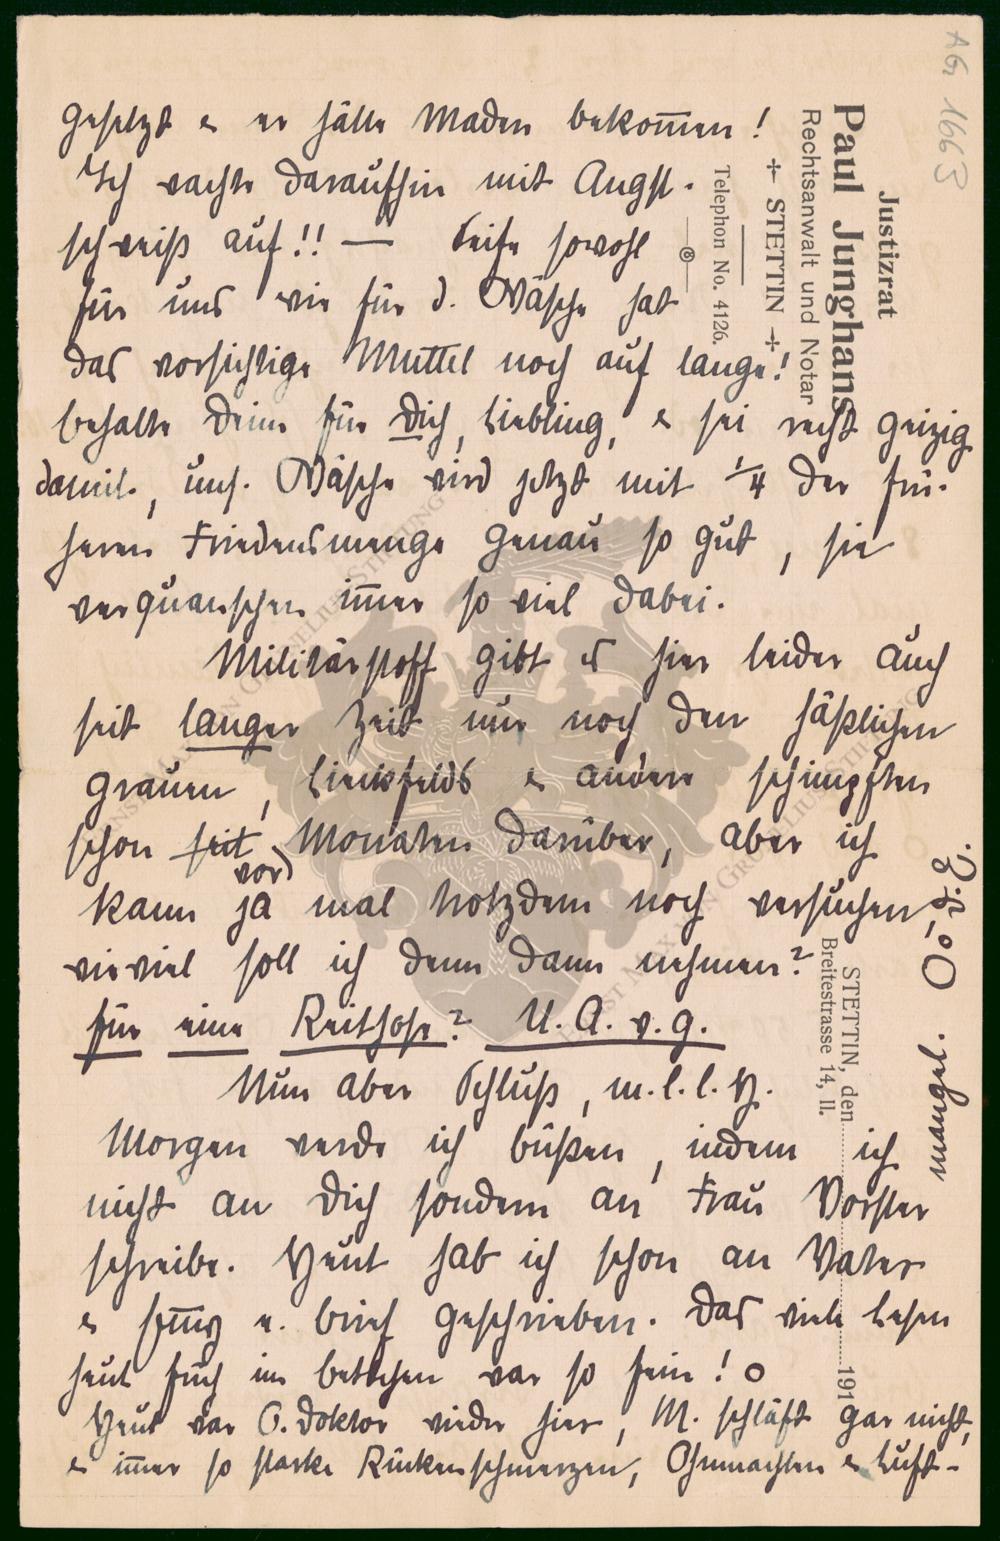 AGr 1663
Justizrat
Paul Junghans
Rechtsanwalt und Notar
+ STETTIN +
Telephon No. 4126.
STETTIN, den
Breitestrasse 14, II.
191
gesetzt & er hätte Maden bekommen!
Ich wachte daraufhin mit Angst-
schweiß auf!! — Seife sowohl
für uns wie für d. Wäsche hat
das vorsichtige Muttel noch auf lange!
behalte Deine für Dich, Liebling, & sei recht geizig
damit, uns. Wäsche wird jetzt mit 1/4 der frü-
heren Friedensmenge genau so gut, sie
verquanschen immer so viel dabei.
Militärstoff gibt es hier leider auch
seit langer Zeit nur noch den häßlichen
grauen, & andere schimpften
schon seit vor Monaten darüber, aber ich
kann ja mal trotzdem noch versuchen,
wieviel soll ich denn dann nehmen?
für eine Reithose? U. A. w. g.
Nun aber Schluß, m. l. l. H.
Morgen werde ich büßen, indem ich
nicht an Dich sondern an Frau Vorster
schreibe. Heut hab ich schon an Vater
& e. Brief geschrieben. Das viele Lesen
heut früh im Bettchen war so fein! o
Heut war O. Doktor wieder hier, M. schläft gar nicht,
& immer so starke Rückenschmerzen, Ohnmachten & Luft-
mangel.